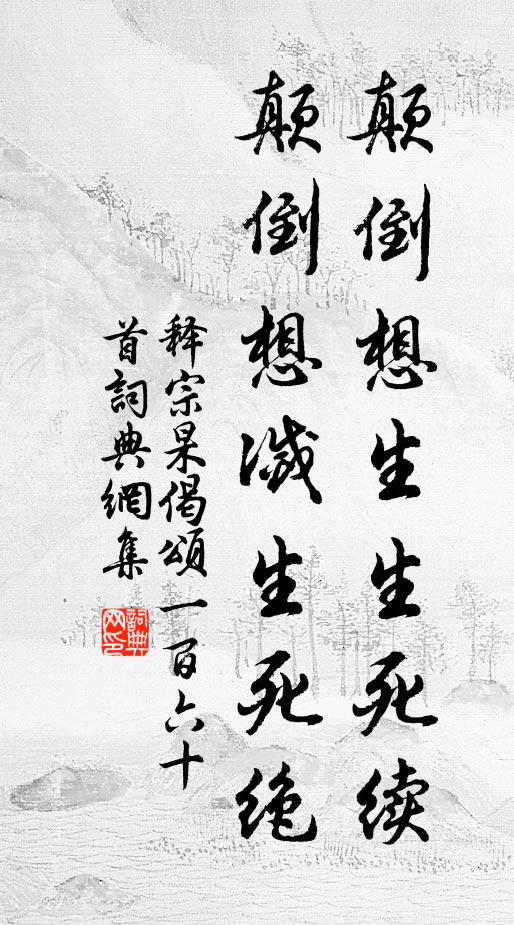 颠倒想生生死续
颠倒想灭生死绝
释宗杲偈頌一百六十
首詞典網集
詞典
网印